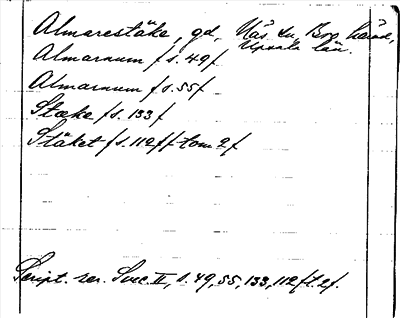 Almarestäke, gd, Näs sn, Bro härad,
Uppsala län.
Almarnum / s. 49 /
Almarnum / s. 55 /
Stæke / s. 133 /
Stäket / s. 112 ff tom 2 /
Script. rer. Svec. II, s. 49, 55, 133, 112 ff t. 2.